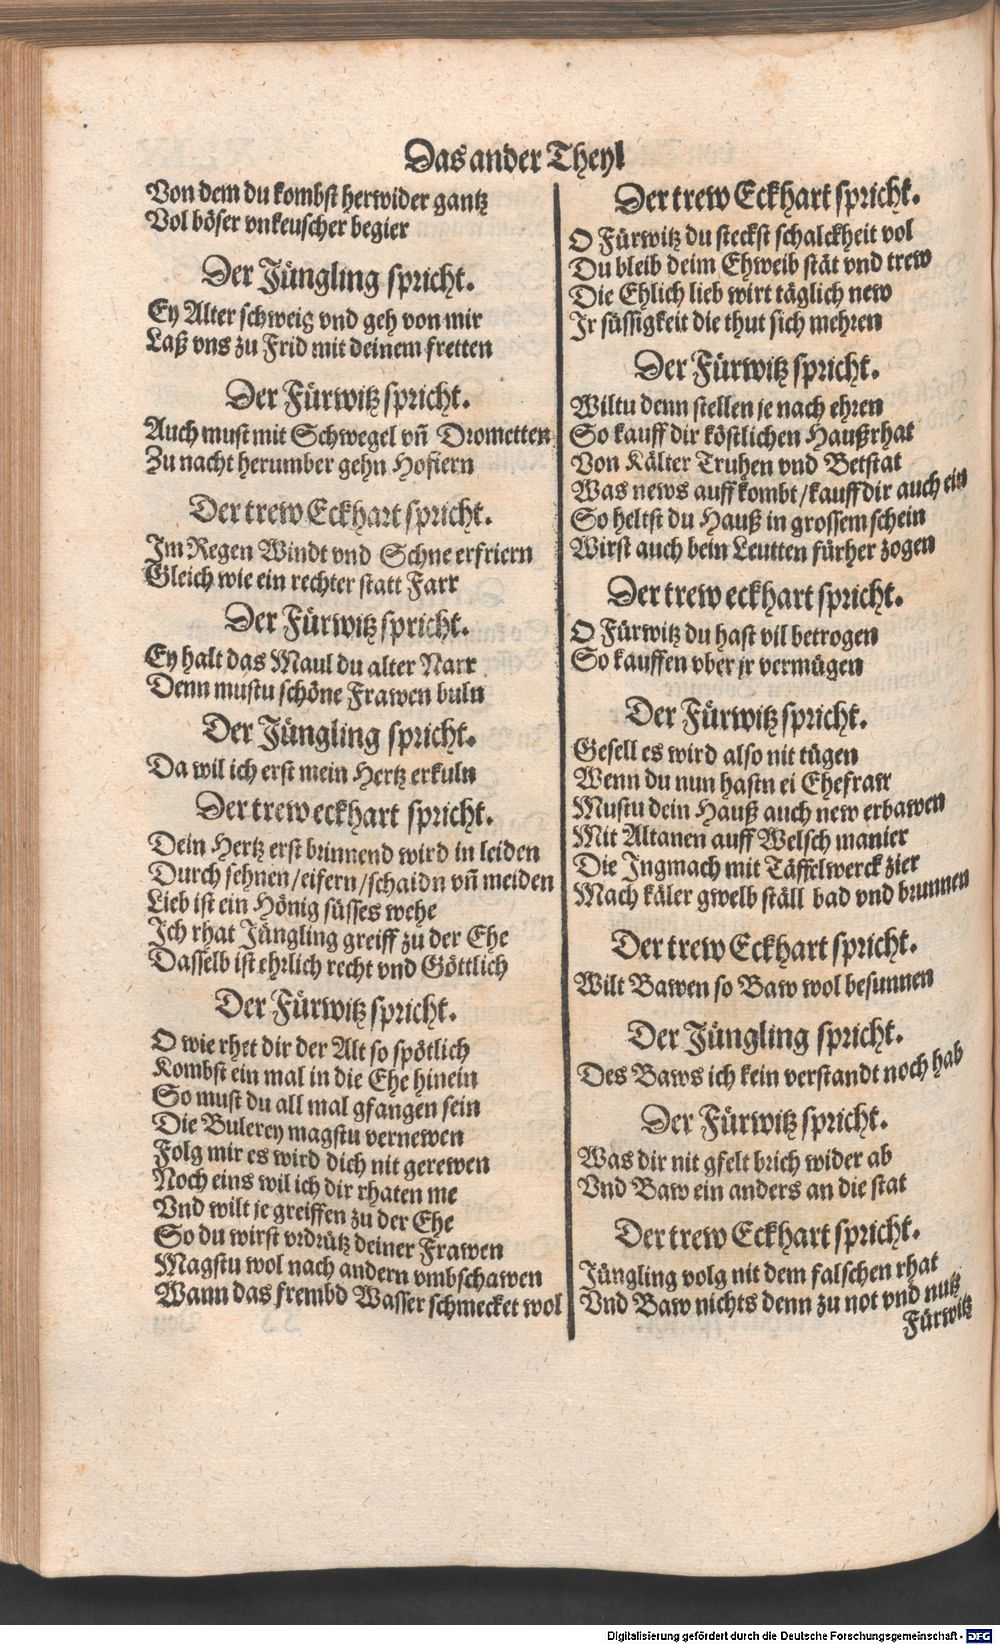 Das ander Theyl
Von dem du kombst herwider gantz
Vol böser vnkeuscher begier
Der Jüngling spricht.
Ey Alter schweig vnd geh von mir
Laß vns zu Frid mit deinem fretten
Der Fürwitz spricht.
Auch must mit Schwegel vñ Drometten
Zu nacht herumber gehn Hofiern
Der trew Eckhart spricht.
Im Regen Windt vnd Schne erfriern
Gleich wie ein rechter statt Farr
Der Fürwitz spricht.
Ey halt das Maul du alter Narr
Denn mustu schöne Frawen buln
Der Jüngling spricht.
Da wil ich erst mein Hertz erkuln
Der trew eckhart spricht.
Dein Hertz erst brinnend wird in leiden
Durch sehnen/eifern/schaidn vñ meiden
Lieb ist ein Hönig süsses wehe
Ich rhat Jüngling greiff zu der Ehe
Dasselb ist ehrlich recht vnd Göttlich
Der Fürwitz spricht.
O wie rhet dir der Alt so spötlich
Kombst ein mal in die Ehe hinein
So must du all mal gfangen sein
Die Bulerey magstu vernewen
Folg mir es wird dich nit gerewen
Noch eins wil ich dir rhaten me
Vnd wilt je greiffen zu der Ehe
So du wirst vrdrütz deiner Frawen
Magstu wol nach andern vmbschawen
Wann das frembd Wasser schmecket wol
Der trew Eckhart spricht.
O Fürwitz du steckst schalckheit vol
Du bleib deim Ehweib stät vnd trew
Die Ehlich lieb wirt täglich new
Ir süssigkeit die thut sich mehren
Der Fürwitz spricht.
Wiltu denn stellen je nach ehren
So kauff dir köstlichen Haußrhat
Von Kälter Truhen vnd Betstat
Was news auff kombt/kauff dir auch ein
So heltst du Hauß in grossem schein
Wirst auch bein Leutten fürher zogen
Der trew eckhart spricht.
O Fürwitz du hast vil betrogen
So kauffen vber jr vermügen
Der Fürwitz spricht.
Gesell es wird also nit tügen
Wenn du nun hastn ei Ehefraw
Mustu dein Hauß auch new erbawen
Mit Altanen auff Welsch manier
Die Ingmach mit Täffelwerck zier
Mach käler gwelb ställ bad vnd brunnen
Der trew Eckhart spricht.
Wilt Bawen so Baw wol besunnen
Der Jüngling spricht.
Des Baws ich kein verstandt noch hab
Der Fürwitz spricht.
Was dir nit gfelt brich wider ab
Vnd Baw ein anders an die stat
Der trew Eckhart spricht.
Jüngling volg nit dem falschen rhat
Vnd Baw nichts denn zu not vnd nutz
Fürwitz
Digitalisierung gefördert durch die Deutsche Forschungsgemeinschaft - DFG